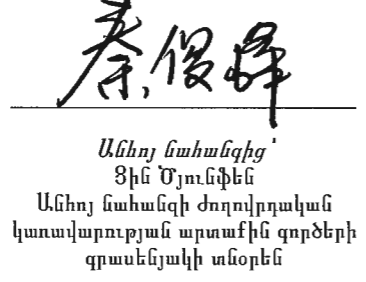 秦俊峰
Անհոյ նահանգից՝
Ցին Ծյունֆեն
Անհոյ նահանգի ժողովրդական
կառավարության արտաքին գործերի
գրասենյակի տնօրեն